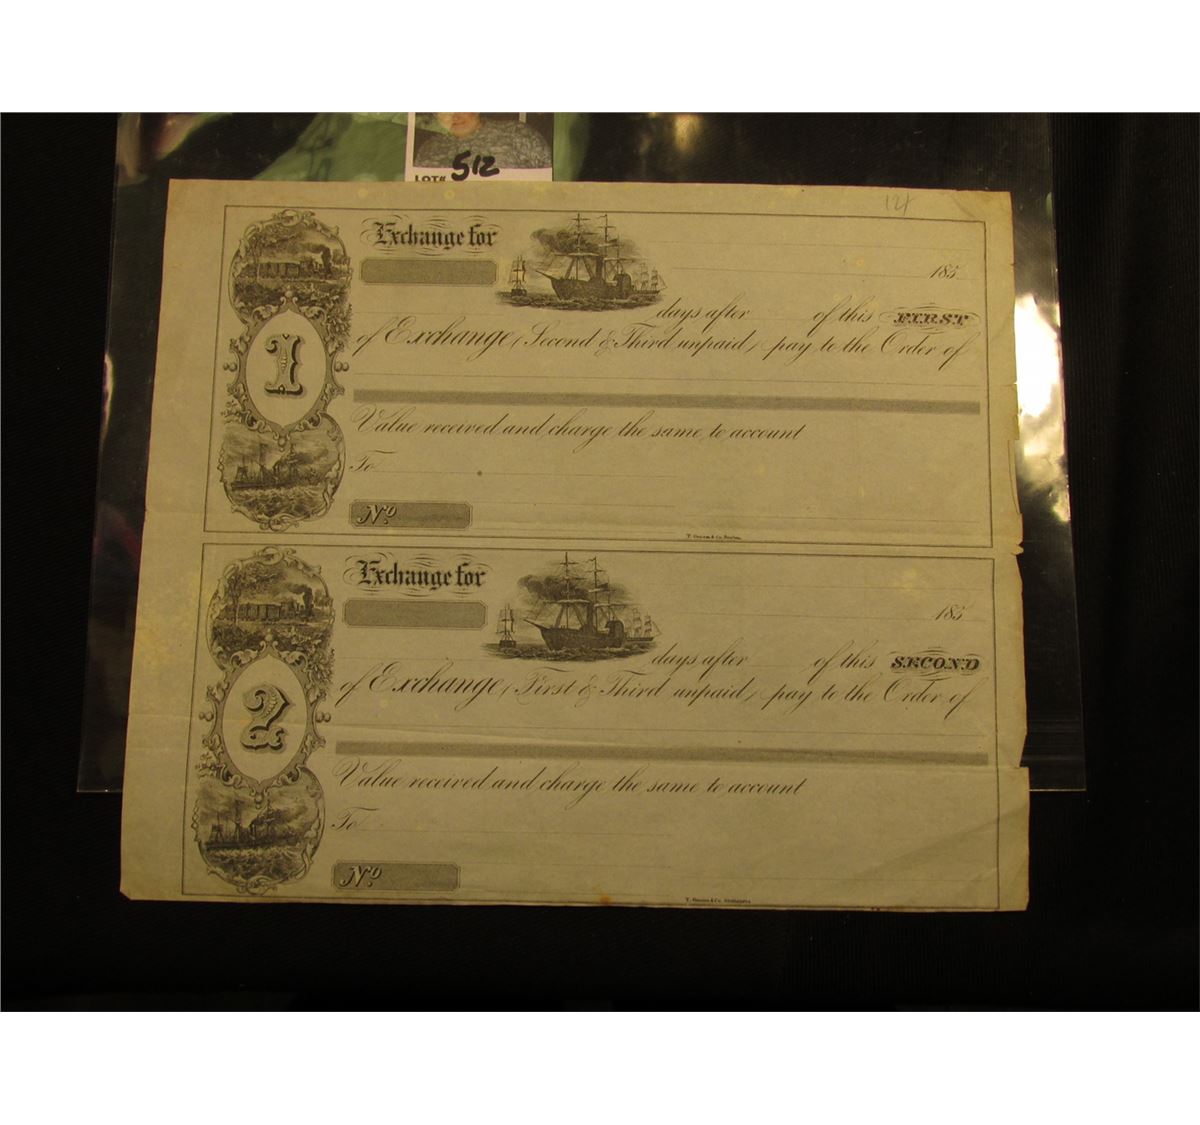 LOT# 512
121
Exchange for
185
days after of this FIRST
of Exchange (Second & Third unpaid) pay to the Order of
1
Value received and charge the same to account
To
No.
& Co. Boston.
Exchange for
185
days after of this SECOND
of Exchange (First & Third unpaid) pay to the Order of
2
Value received and charge the same to account
To
No.
& Co.